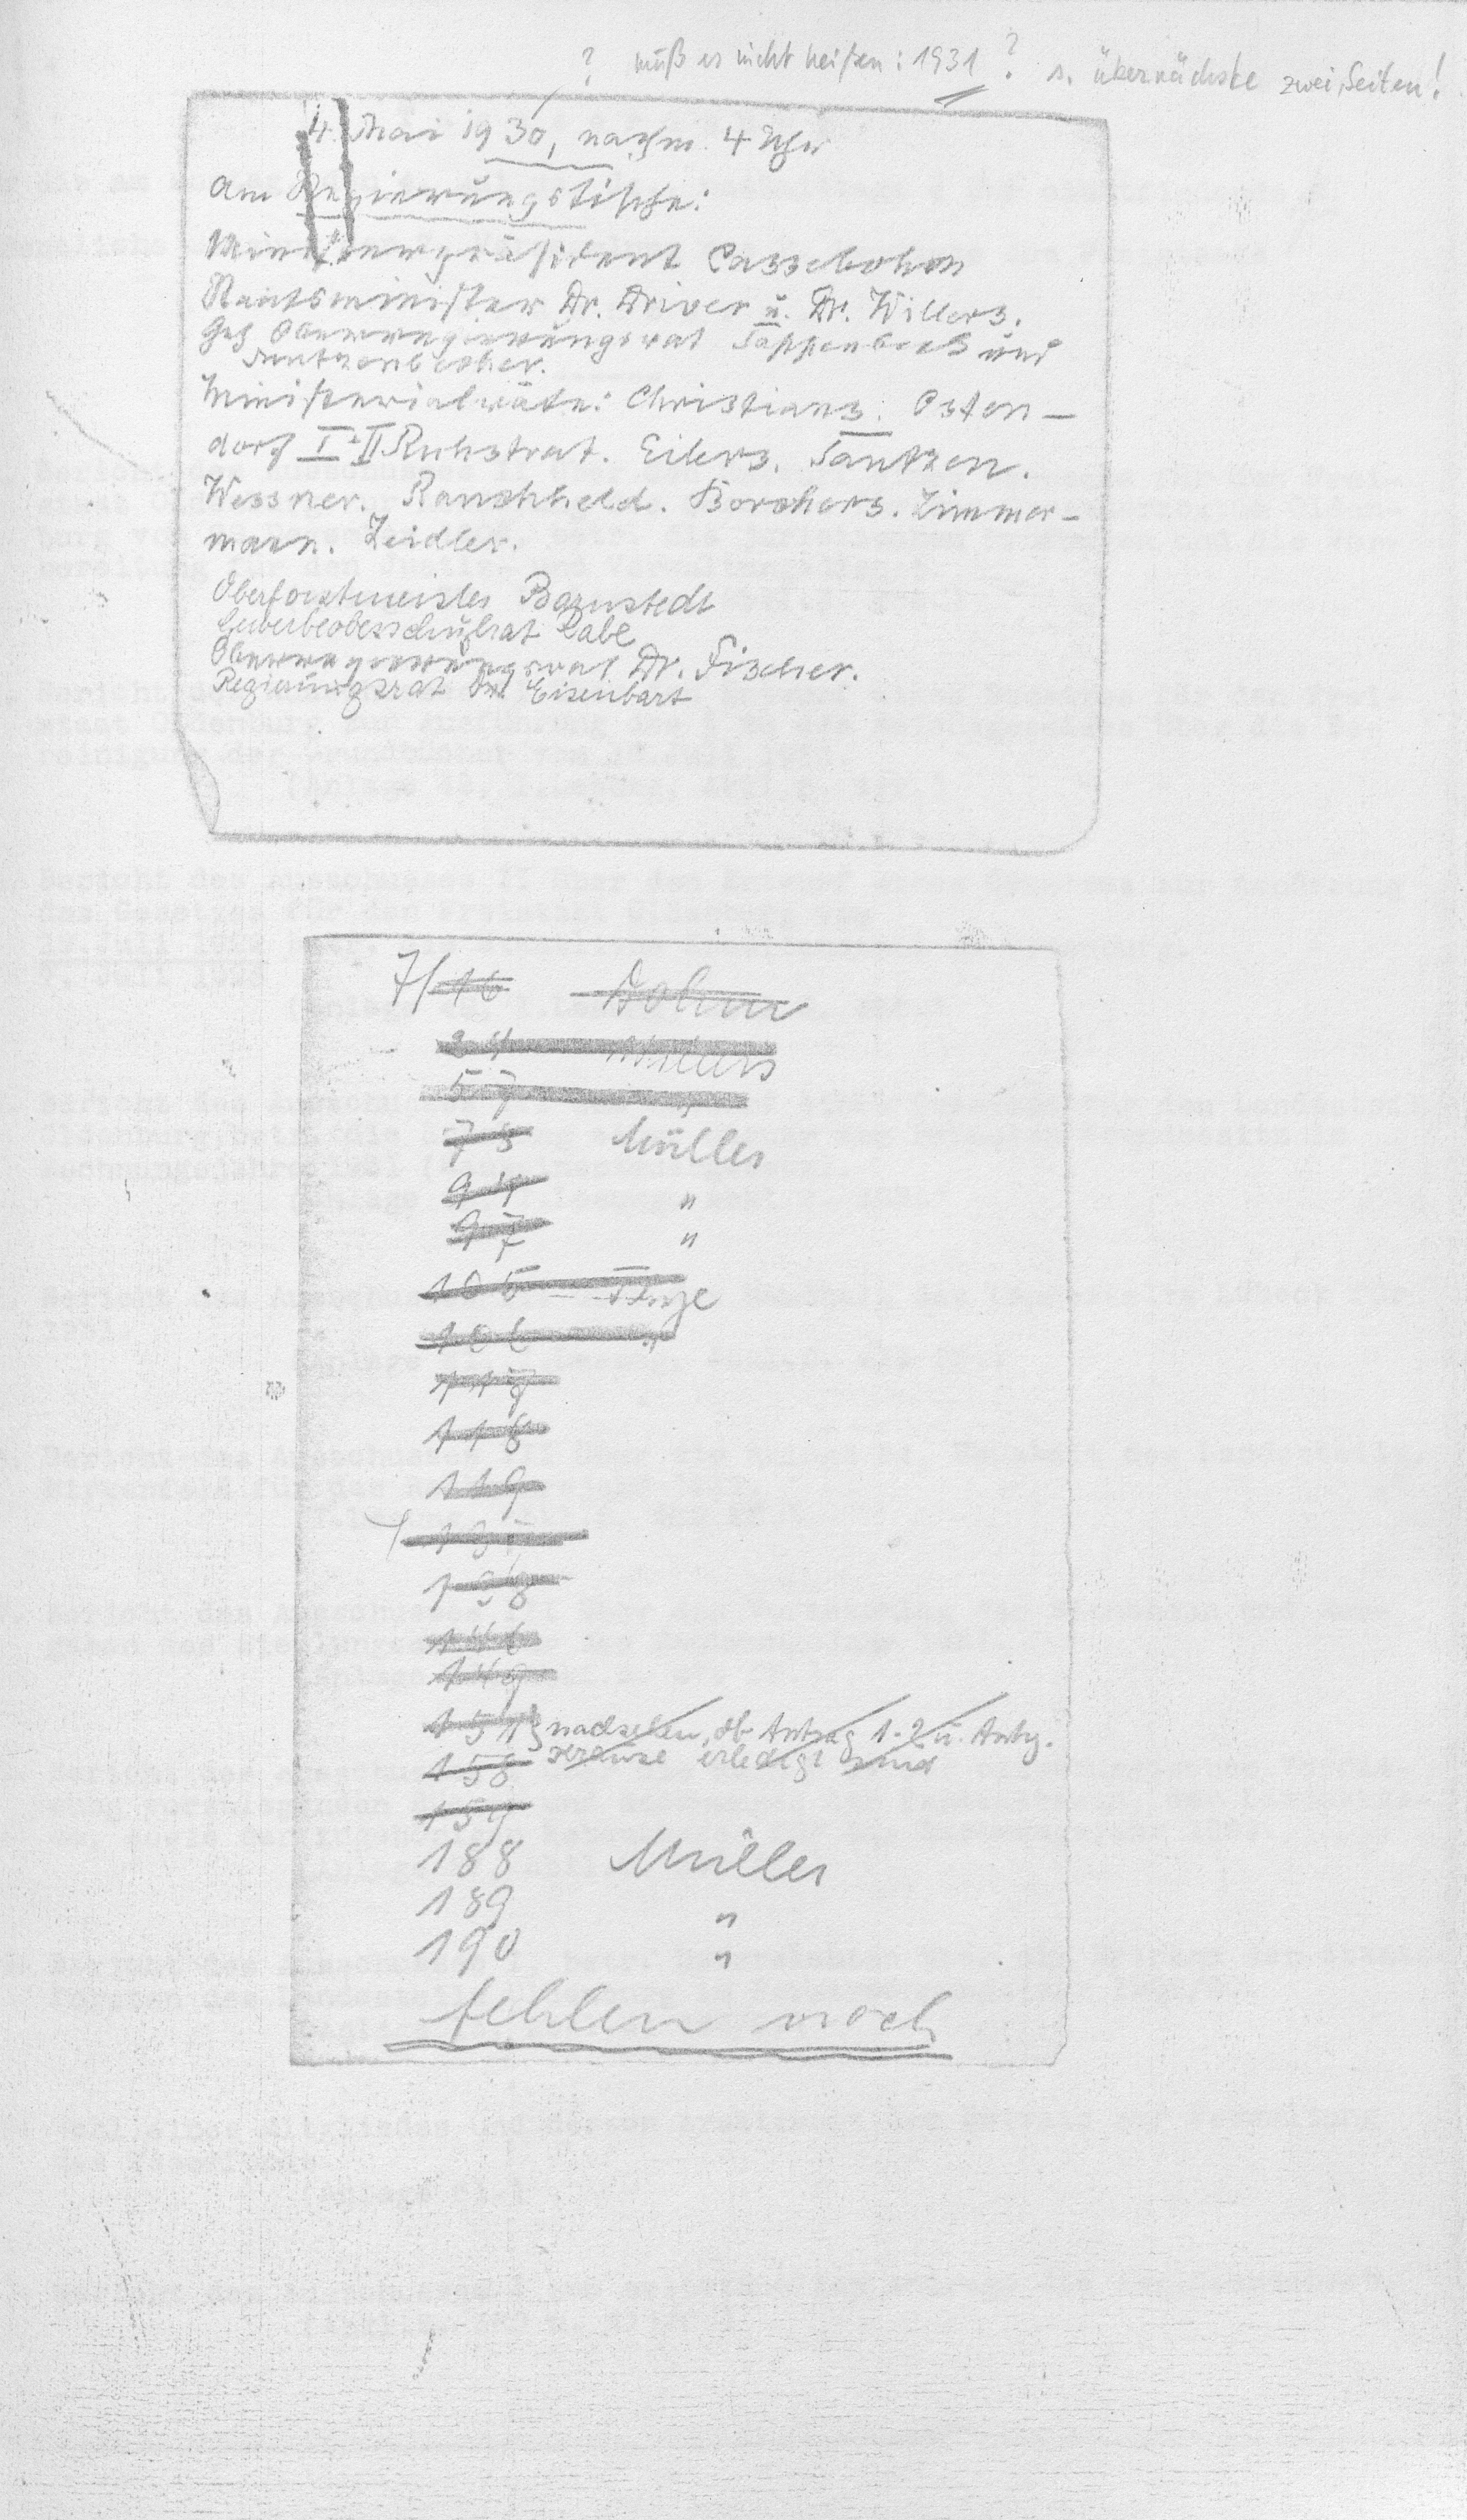 ? muß es nicht heißen: 1931? s. übernächste zwei Seiten!
4. Mai 1930, nachm. 4 Uhr
Am Regierungstische:
Ministerpräsident Cassebohm
Staatsminister Dr. Driver u. Dr. Willers.
Geh Oberregierungsrat Tappenbeck und
Mutzenbecher.
Ministerialräte: Christians. Osten-
dorf I + II Ruhstrat. Eilers. Tantzen.
Wessner. Rauchheld. Borchers. Zimmer-
mann. Zeidler.
Oberforstmeister Barnstedt
Gewerbeoberschulrat Rabe
Oberregierungsrat Dr. Fischer.
Regierungsrat Dr. Eisenbart
7/ 16 Dohm
Willers
57 "
75 Müller
94 "
97 "
105
106 "
117
118
119
138
146
149
157 nachsehen, ob Antrag 1-2 u. Antrg.
158 erledigt sind
159
188 Müller
189 "
190 "
fehlen noch